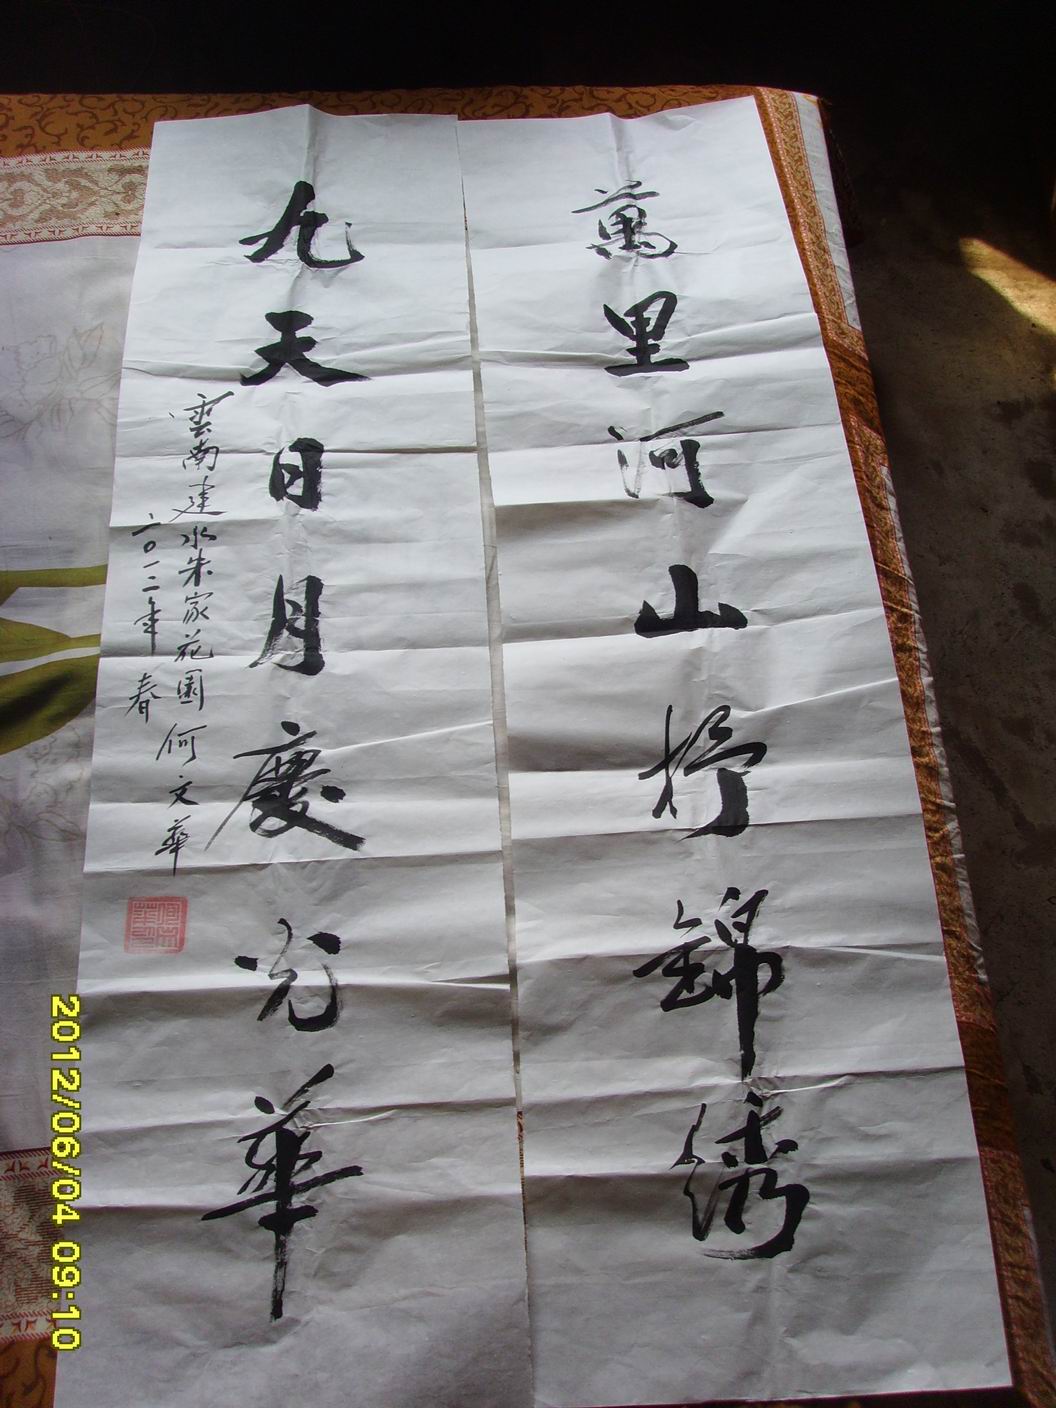 萬里河山抒錦绣
九天日月慶光華
雲南建水朱家花園何文華
二〇一二年春
2012/06/04 09:10